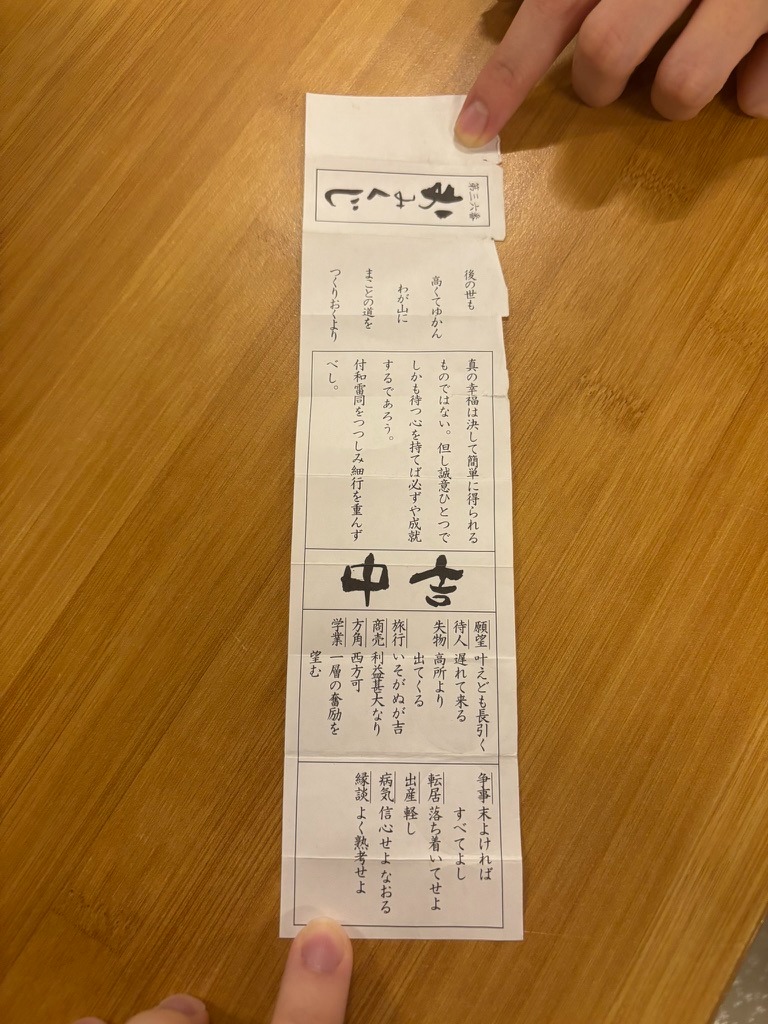 第三六番
おみくじ
後の世も
高くてゆかん
わが山に
まことの道を
つくりおくより
真の幸福は決して簡単に得られる
ものではない。但し誠意ひとつで
しかも待つ心を持てば必ずや成就
するであろう。
付和雷同をつつしみ細行を重んず
べし。
中吉
願望 叶えども長引く
待人 遅れて来る
失物 高所より
出てくる
旅行 いそがぬが吉
商売 利益甚大なり
方角 西方可
学業 一層の奮励を
望む
争事 末よければ
すべてよし
転居 落ち着いてせよ
出産 軽し
病気 信心せよ なおる
縁談 よく熟考せよ